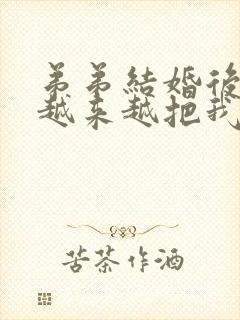 弟弟結婚後
越来越把我
苦茶作酒